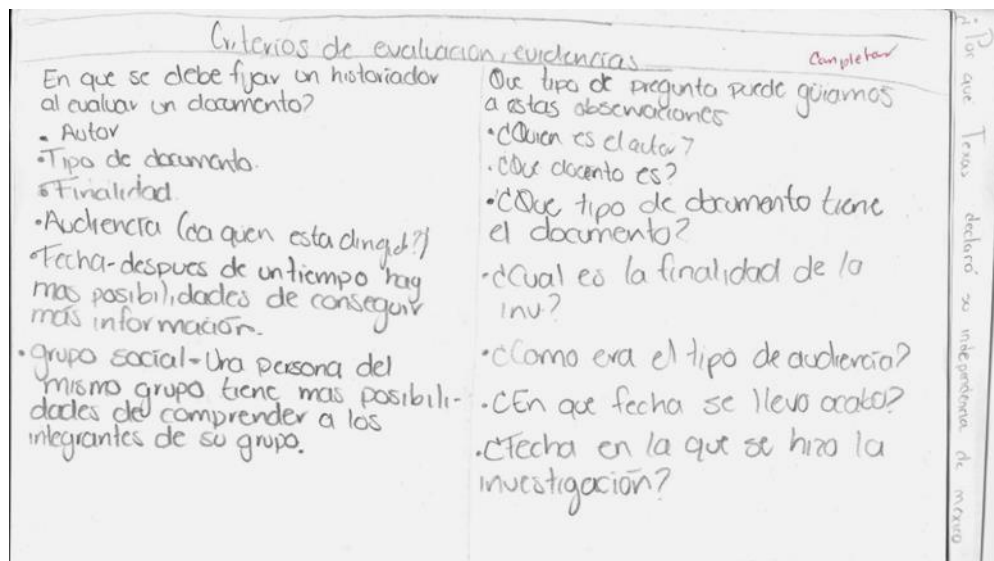 Criterios de evaluacion, evidencias
Completar
En que se debe fijar un historiador
al evaluar un documento?
• Autor
• Tipo de documento.
• Finalidad.
• Audiencia (¿a quien esta dirigid?)
• Fecha - despues de un tiempo hay
mas posibilidades de conseguir
más información.
• grupo social - Una persona del
mismo grupo tiene mas posibili-
dades de comprender a los
integrantes de su grupo.
Que tipo de pregunta puede guiarnos
a estas observaciones
• ¿Quien es el autor?
• ¿Que docento es?
• ¿Que tipo de documento tiene
el documento?
• ¿Cual es la finalidad de la
inv.?
• ¿Como era el tipo de audiencia?
• ¿En que fecha se llevo acabo?
• ¿Fecha en la que se hizo la
investigación?
¿Por que Texas declaró su independencia de mexico